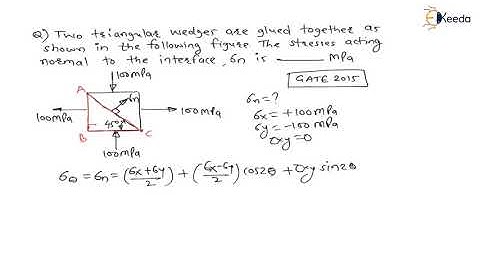 Ekeeda
Q) Two triangular wedges are glued together as
shown in the following figure. The stresses acting
normal to the interface, σn is ______ MPa
GATE 2015
100mpa
A
σn
100MPa
45°
100MPa
B
C
100mpa
σn=?
σx=+100mpa
σy=-100mpa
τxy=0
σθ = σn = (σx+σy/2) + (σx-σy/2) cos2θ + τxy sin2θ